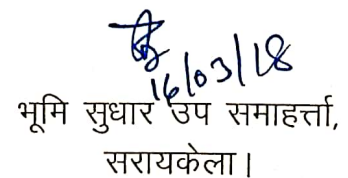 16/03/18
भूमि सुधार उप समाहर्त्ता,
सरायकेला।